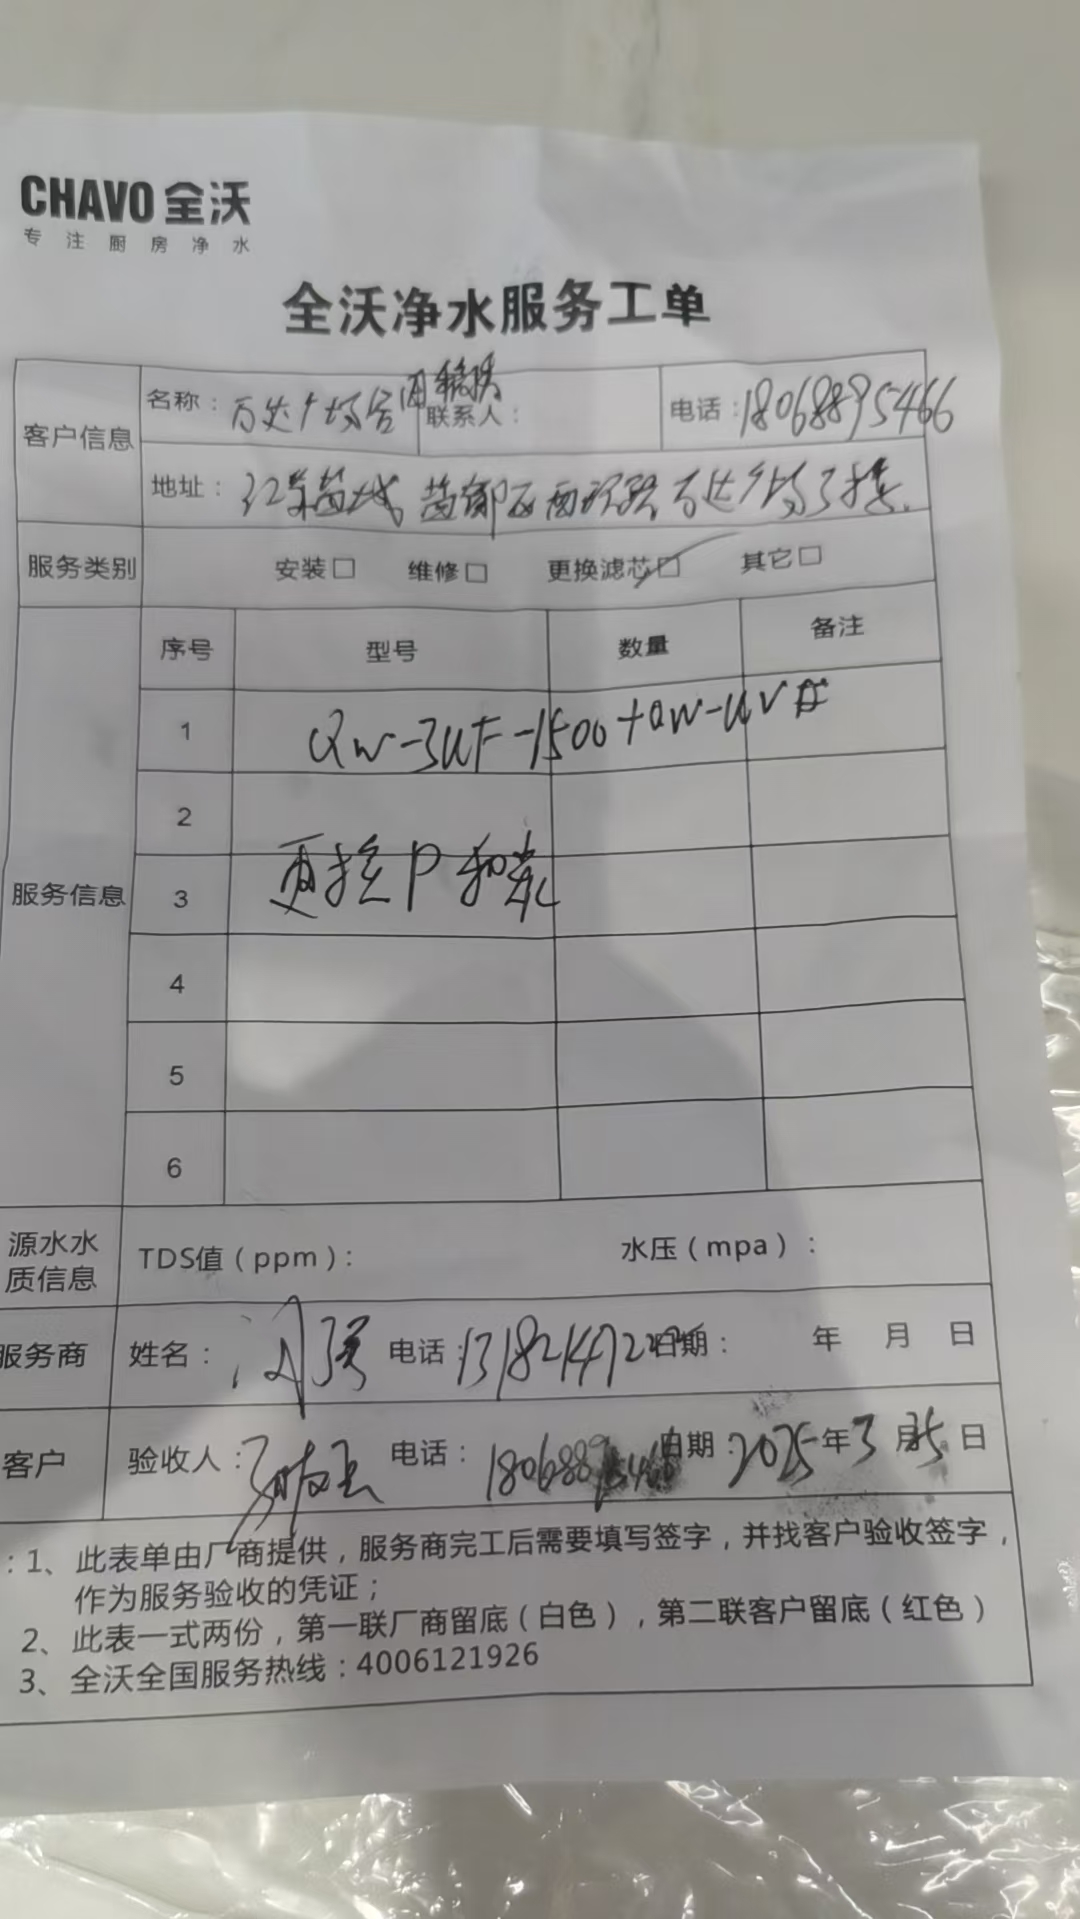 CHAVO 全沃
专注厨房净水
全沃净水服务工单
客户信息 名称： 万达广场店 联系人： 电话：18068895466
地址： 江苏盐城 盐都区西环路万达广场3楼
服务类别 安装□ 维修□ 更换滤芯□ 其它□
服务信息 序号 型号 数量 备注
1 QW-3UF-1500+QW-UV
2
3 更换P和炭
4
5
6
源水水质信息 TDS值（ppm）： 水压（mpa）：
服务商 姓名： 电话： 日期： 年 月 日
客户 验收人： 电话： 日期：2025年3月25日
：1、此表单由厂商提供，服务商完工后需要填写签字，并找客户验收签字，
作为服务验收的凭证；
2、此表一式两份，第一联厂商留底（白色），第二联客户留底（红色）
3、全沃全国服务热线：4006121926